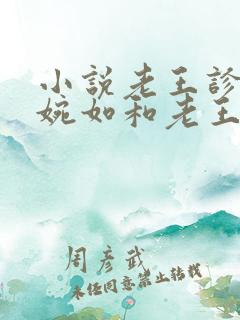 小說老王診
婉如和老王
周彦武
未经同意禁止转载